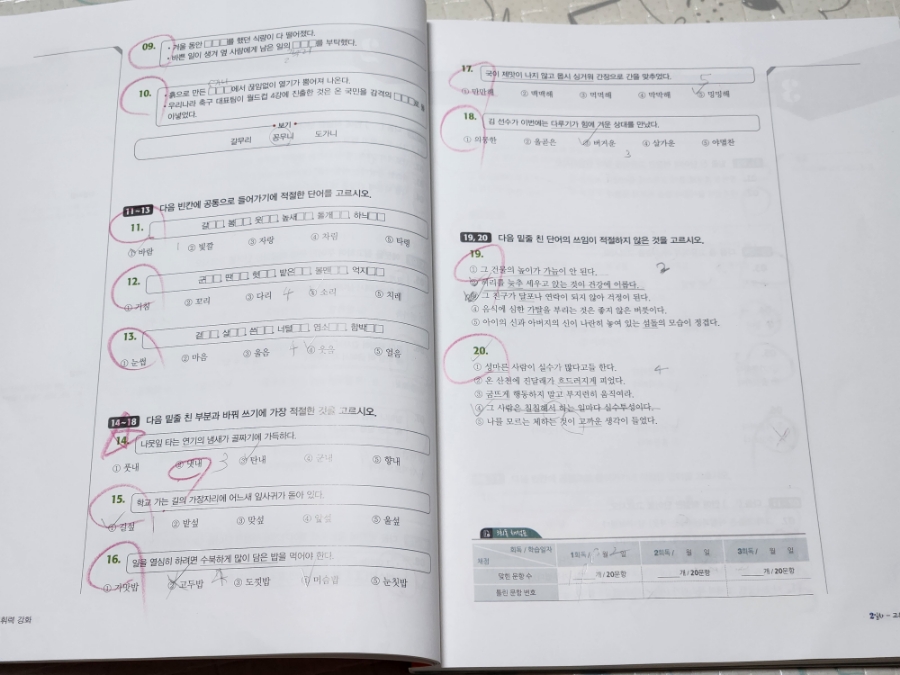 09.
• 겨울 동안 □□□를 했던 식량이 다 떨어졌다.
• 바쁜 일이 생겨 옆 사람에게 남은 일의 □□□를 부탁했다.
10.
• 흙으로 만든 □□□에서 끊임없이 열기가 뿜어져 나온다.
• 우리나라 축구 대표팀이 월드컵 4강에 진출한 것은 온 국민을 감격의 □□□로
이넣었다.
• 보기 •
갈무리 꽁무니 도가니
11~13 다음 빈칸에 공통으로 들어가기에 적절한 단어를 고르시오.
11.
갈□□, 봄□□, 웃□□, 높새□□, 하늬□□
① 바람 ② 빛깔 ③ 자랑 ④ 차림 ⑤ 타령
12.
군□□, 딴□□, 헛□□, 볼멘□□, 억지□□
① 가림 ② 꼬리 ③ 다리 4 ④ 소리 ⑤ 치레
13.
겉□□, 살□□, 쓴□□, 너털□□, 함박□□
① 눈썹 ② 마음 ③ 울음 4 ④ 웃음 ⑤ 얼음
14~18 다음 밑줄 친 부분과 바꿔 쓰기에 가장 적절한 것을 고르시오.
14.
나뭇잎 타는 연기의 냄새가 골짜기에 가득하다.
① 풋내 ② 냇내 3 ③ 단내 ④ 군내 ⑤ 향내
15.
학교 가는 길의 가장자리에 어느새 잎사귀가 돋아 있다.
① 길섶 ② 밭섶 ③ 맞섶 ④ 잎섶 ⑤ 울섶
16.
일을 열심히 하려면 수북하게 많이 담은 밥을 먹어야 한다.
① 가맛밥 ② 고두밥 4 ③ 도낏밥 ⑤ 눈칫밥
휘력 강화
17.
국이 제맛이 나지 않고 몹시 싱거워 간장으로 간을 맞추었다.
5
① 민민해 ② 백백해 ③ 빅빅해 ④ 박박해 ⑤ 밍밍해
18.
김 선수가 이번에는 다루기가 힘에 겨운 상대를 만났다.
② 올곧은 ③ 버거운 ④ 살가운 ⑤ 야멸찬
3
19, 20 다음 밑줄 친 단어의 쓰임이 적절하지 않은 것을 고르시오.
19.
① 그 건물의 높이가 가늠이 안 된다.
2
② 허리를 늦추 세우고 앉는 것이 건강에 이롭다.
③ 그 친구가 달포나 연락이 되지 않아 걱정이 된다.
④ 음식에 심한 가탈을 부리는 것은 좋지 않은 버릇이다.
⑤ 아이의 신과 아버지의 신이 나란히 놓여 있는 섬돌의 모습이 정겹다.
20.
① 성마른 사람이 실수가 많다고들 한다.
4
② 온 산천에 진달래가 흐드러지게 피었다.
③ 굼뜨게 행동하지 말고 부지런히 움직여라.
④ 그 사람은 칠칠해서 하는 일마다 실수투성이다.
⑤ 나를 모르는 체하는 것이 고까운 생각이 들었다.
회독 / 학습일자 1회독 / 월 2 일 2회독 / 월 일 3회독 / 월 일
채점
맞힌 문항 수 개 / 20문항 개 / 20문항 개 / 20문항
틀린 문항 번호